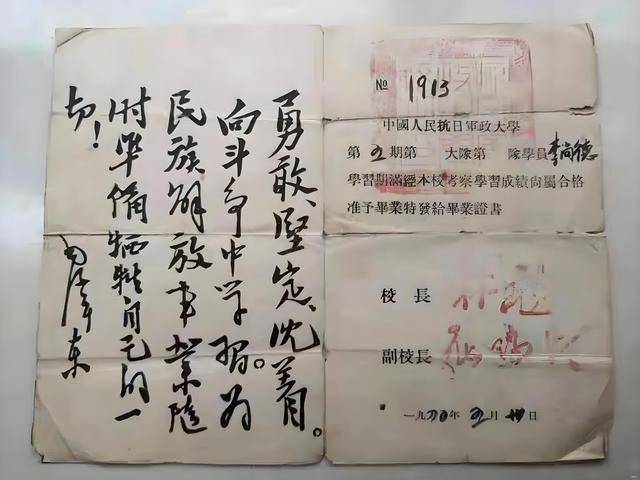 № 1913
中國人民抗日軍政大學
第五期第 大隊第 隊學員李尚德
學習期滿經本校考察學習成績尙屬合格
准予畢業特發給畢業證書
校長
副校長
一九 年 月 日
勇敢、堅定、沈着。
向斗争中学習。为
民族解放事業随
时準備牺牲自己的一
切！
毛泽东